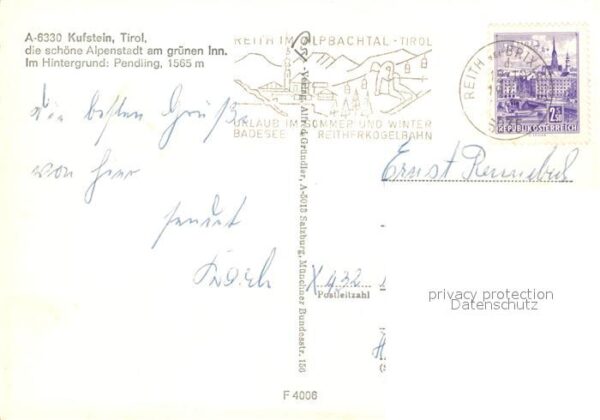 A-6330 Kufstein, Tirol,
die schöne Alpenstadt am grünen Inn.
Im Hintergrund: Pendling, 1565 m
REITH IM ALPBACHTAL - TIROL
URLAUB IM SOMMER UND WINTER
BADESEE REITHERKOGELBAHN
REITH BRIXL
2.50
REPUBLIK ÖSTERREICH
Die besten Grüße
von hier
sendet
Ernst
Verlag Alfred Gründler, A-5015 Salzburg, Münchner Bundesstr. 156
Postleitzahl
privacy protection
Datenschutz
F 4006